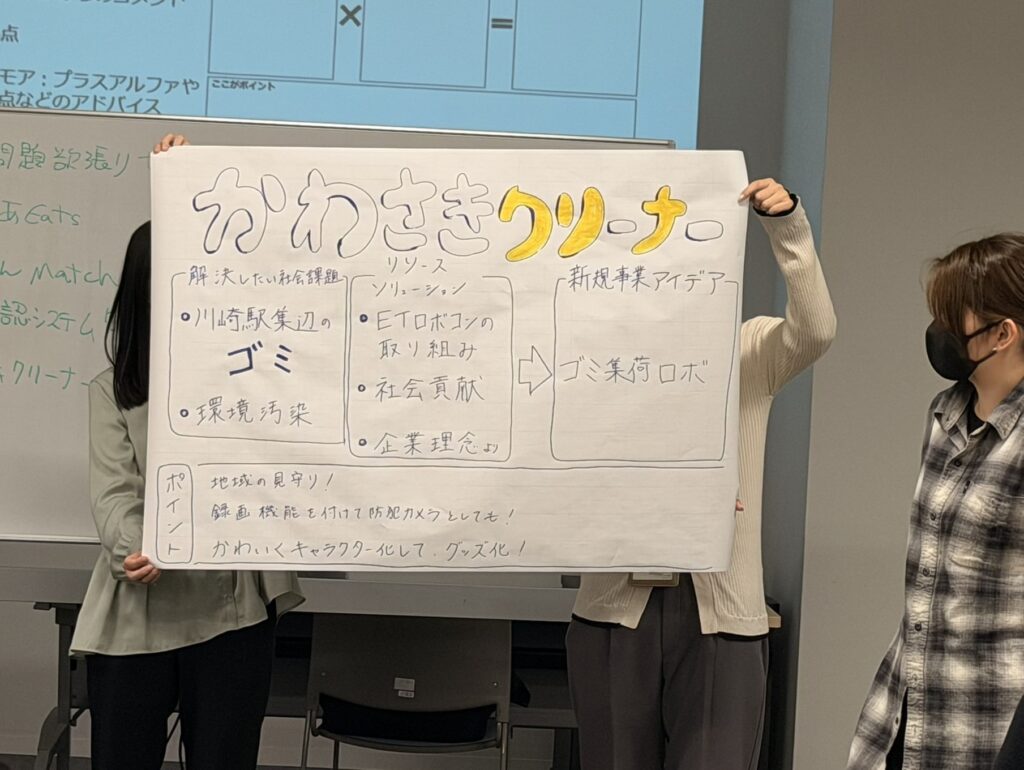 点
モア：プラスアルファや
点などのアドバイス
×
=
ここがポイント
問題欲張り
Eats
Match
認システム
クリーナー
かわさきクリーナー
解決したい社会課題
・川崎駅集辺の
ゴミ
・環境汚染
リソース
ソリューション
・ETロボコンの
取り組み
・社会貢献
・企業理念より
⇨
新規事業アイデアー
ゴミ集荷ロボ
ポイント
地域の見守り!
録画機能を付けて防犯カメラとしても!
かわいくキャラクター化して、グッズ化!